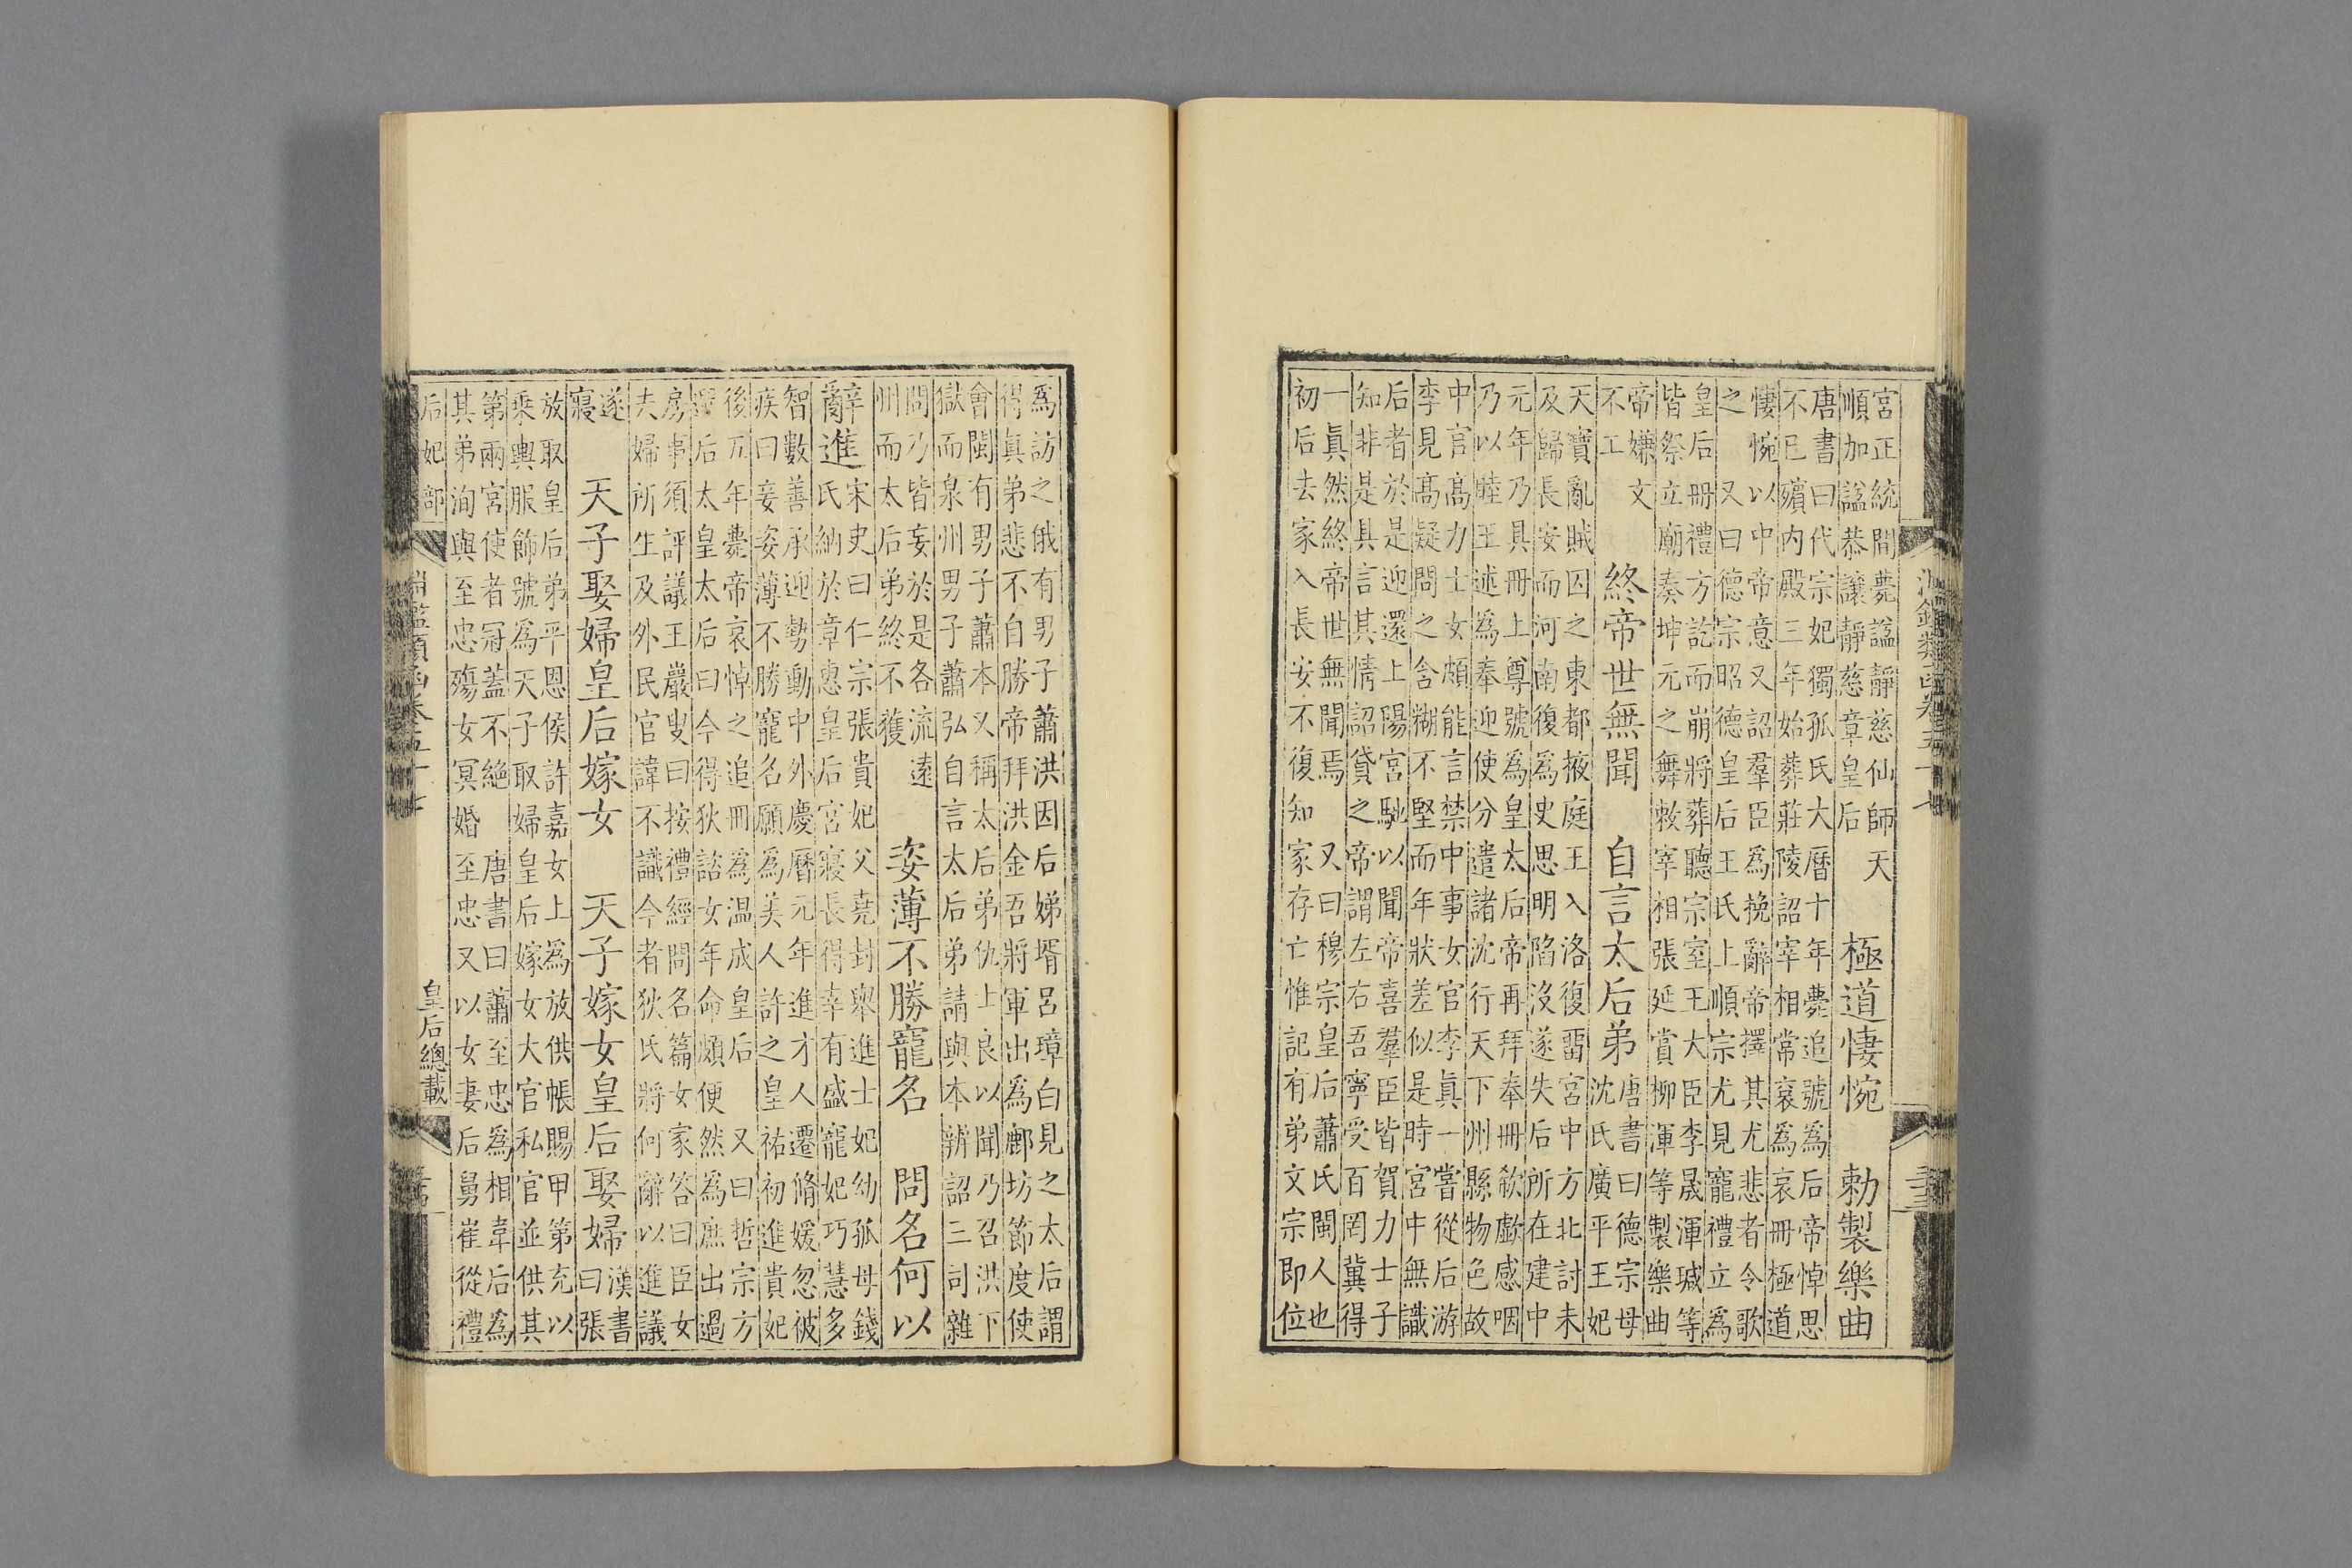 淵鑑類函卷五十七
宮正統間薨諡靜慈仙師 天
順加諡恭讓靜慈章皇后
極道悽惋 勅製樂曲
唐書曰代宗妃獨孤氏大曆十年薨追號為后帝悼思
不已殯內殿三年始葬莊陵詔宰相常衮為哀冊極道
悽惋以中帝意又詔羣臣為挽辭帝擇其尤悲者令歌
之 又曰德宗昭德皇后王氏上順宗尤見寵禮立為
皇后冊禮方訖而崩將葬聽宗室王大臣李晟渾瑊等
皆祭立廟奏坤元之舞敕宰相張延賞柳渾等製樂曲
帝嫌文
不工
終帝世無聞 自言太后弟
唐書曰德宗母
沈氏廣平王妃
天寶亂賊囚之東都掖庭王入洛復畱宮中方北討未
及歸長安而河南復為史思明陷沒遂失后所在建中
元年乃具冊上尊號為皇太后帝再拜奉冊欷歔感咽
乃以睦王述為奉迎使分遣諸沈行天下州縣物色故
中官高力士女頗能言禁中事女官李眞一嘗從后游
李見高疑問之含糊不堅而年狀差似是時宮中無識
后者於是迎還上陽宮馳以聞帝喜羣臣皆賀力士子
知非是具言其情詔貸之帝謂左右吾寧受百罔冀得
一眞然終帝世無聞焉 又曰穆宗皇后蕭氏閩人也
初后去家入長安不復知家存亡惟記有弟文宗即位
為訪之俄有男子蕭洪因后娣壻呂璋白見之太后謂
得眞弟悲不自勝帝拜洪金吾將軍出為鄜坊節度使
會閩有男子蕭本又稱太后弟仇上良以聞乃召洪下
獄而泉州男子蕭弘自言太后弟請與本辨詔三司雜
問乃皆妄於是各流遠
州而太后弟終不獲
姿薄不勝寵名 問名何以
辭進
宋史曰仁宗張貴妃父堯封舉進士妃幼孤母錢
氏納於章惠皇后宮寢長得幸有盛寵妃巧慧多
智數善承迎勢動中外慶曆元年進才人遷脩媛忽被
疾曰妾姿薄不勝寵名願為美人許之皇祐初進貴妃
後五年薨帝哀悼之追冊為温成皇后 又曰哲宗方
選后太皇太后曰今得狄諮女年命頗便然為庶出過
房事須評議王巖叟曰按禮經問名篇女家答曰臣女
夫婦所生及外民官諱不識今者狄氏將何辭以進議
遂
寢
天子娶婦皇后嫁女 天子嫁女皇后娶婦
漢書
曰張
放取皇后弟平恩侯許嘉女上為放供帳賜甲第充以
乗輿服飾號為天子取婦皇后嫁女大官私官並供其
第兩宮使者冠蓋不絕 唐書曰蕭至忠為相韋后為
其弟洵與至忠殤女冥婚至忠又以女妻后舅崔從禮
后妃部 淵鑑類函卷五十七 皇后總載